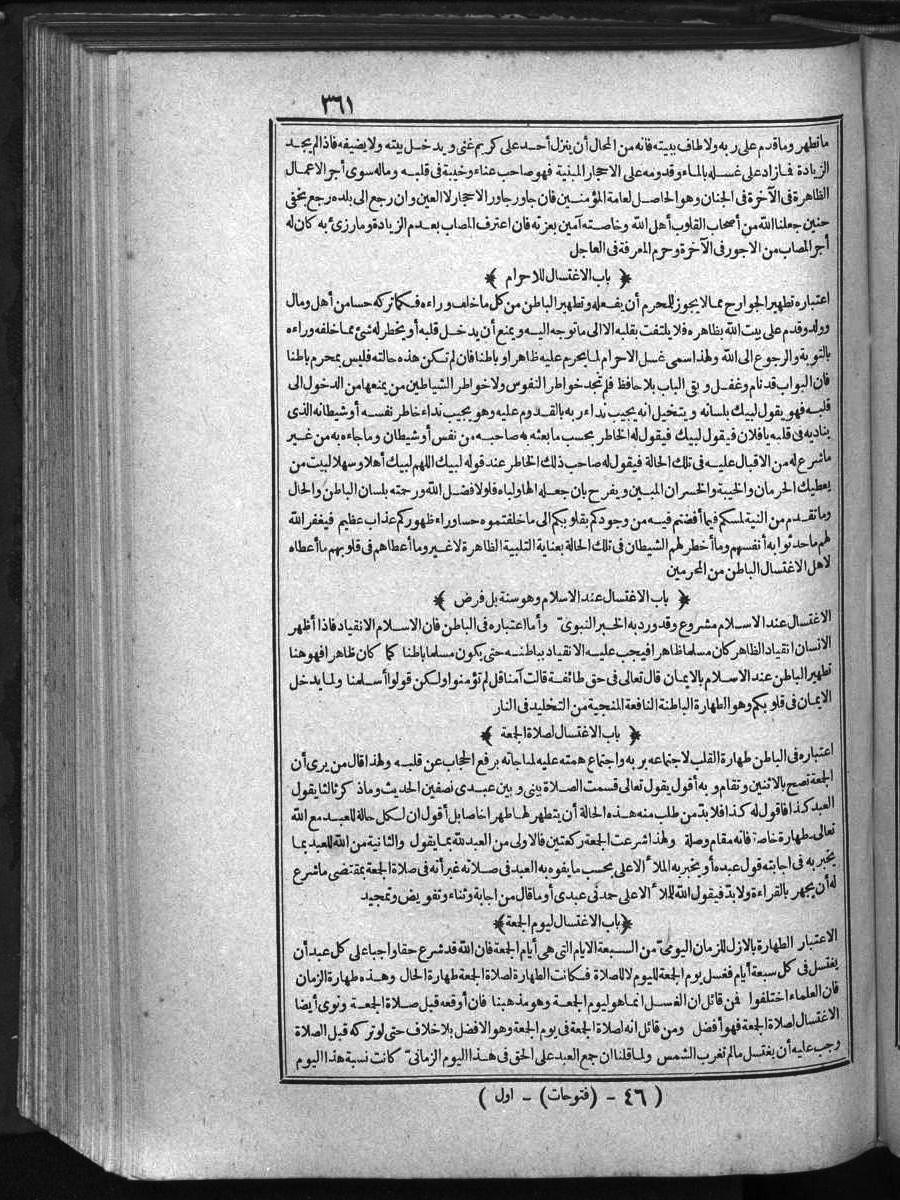 ٣٦١
ما تطهر وما قدم على ربه ولا طاف ببيته فانه من المحال أن ينزل أحد على كريم غنى ويدخل بيته ولا يضيفه فاذا لم يجد
الزيادة فما زاد على غسله بالماء وقدومه على الاحجار المبنية فهو صاحب عناء وخيبة فى قلبه وماله سوى أجر الاعمال
الظاهرة فى الآخرة فى الجنان وهو الحاصل لعامة المؤمنين فان جاور جاور الاحجار لا العين وان رجع الى بلده رجع بخفى
حنين جعلنا الله من أصحاب القلوب أهل الله وخاصته آمين بعزته فان اعترف المصاب بعدم الزيادة ومارزئ به كان له
أجر المصاب من الاجور فى الآخرة وحرم المعرفة فى العاجل
﴿ باب الاغتسال للاحرام ﴾
اعتباره تطهير الجوارح مما لا يجوز للمحرم أن يفعله وتطهير الباطن من كل ما خلف وراءه فكما تركه حسا من أهل ومال
وولد وقدم على بيت الله بظاهره فلا يلتفت بقلبه الا الى ما توجه اليه ويمنع أن يدخل قلبه أو يخطر له شئ مما خلفه وراءه
بالتوبة والرجوع الى الله ولهذا سمى غسل الاحرام لما يحرم عليه ظاهرا وباطنا فان لم تكن هذه حالته فليس بمحرم باطنا
فان البواب قد نام وغفل وبقى الباب بلا حافظ فلم تجد خواطر النفوس ولا خواطر الشياطين من يمنعها من الدخول الى
قلبه فهو يقول لبيك بلسانه ويتخيل انه يجيب نداء ربه بالقدوم عليه وهو يجيب نداء خاطر نفسه أو شيطانه الذى
يناديه فى قلبه يا فلان فيقول لبيك فيقول له الخاطر بحسب ما بعثه به صاحبه من نفس أو شيطان وما جاءه به من غير
ما شرع له من الاقبال عليه فى تلك الحالة فيقول له صاحب ذلك الخاطر عند قوله لبيك اللهم لبيك أهلا وسهلا لبيت من
يعطيك الحرمان والخيبة والخسران المبين ويفرح بان جعله الها ولباه فلولا فضل الله ورحمته بلسان الباطن والحال
وما تقدم من النية لمسكم فيما أفضتم فيه من وجودكم بقلوبكم الى ما خلفتموه حسا وراء ظهوركم عذاب عظيم فيغفر الله
لهم ما حدثوا به أنفسهم وما أخطر لهم الشيطان فى تلك الحالة بعناية التلبية الظاهرة لا غير وما أعطاهم فى قلوبهم ما أعطاه
لاهل الاغتسال الباطن من المحرمين
﴿ باب الاغتسال عند الاسلام وهو سنة بل فرض ﴾
الاغتسال عند الاسلام مشروع وقد ورد به الخبر النبوىّ وأما اعتباره فى الباطن فان الاسلام الانقياد فاذا أظهر
الانسان انقياد الظاهر كان مسلما ظاهرا فيجب عليه الانقياد بباطنه حتى يكون مسلما باطنا كما كان ظاهرا فهو هنا
تطهير الباطن عند الاسلام بالايمان قال تعالى فى حق طائفة قالت آمنا قل لم تؤمنوا ولكن قولوا أسلمنا ولما يدخل
الايمان فى قلوبكم وهو الطهارة الباطنة النافعة المنجية من التخليد فى النار
﴿ باب الاغتسال لصلاة الجمعة ﴾
اعتباره فى الباطن طهارة القلب لاجتماعه بربه واجتماع همته عليه لمناجاته برفع الحجاب عن قلبه ولهذا قال من يرى أن
الجمعة تصح بالاثنين وتقام وبه أقول يقول تعالى قسمت الصلاة بينى وبين عبدى نصفين الحديث وما ذكر ثالثا يقول
العبد كذا فاقول له كذا فلا بد من طلب منه هذه الحالة أن يتطهر لها طهرا خاصا بل أقول ان لكل حالة للعبد مع الله
تعالى طهارة خاصة فانه مقام وصلة ولهذا شرعت الجمعة ركعتين فالاولى من العبد لله بما يقول والثانية من الله للعبد بما
يخبر به فى اجابته قول عبده أو يخبر به الملأ الاعلى بحسب ما يفوه به العبد فى صلاته غير أنه فى صلاة الجمعة بمقتضى ما شرع
له أن يجهر بالقراءة ولا بدّ فيقول الله للملأ الاعلى حمدنى عبدى أو ما قال من اجابة وثناء وتفويض وتمجيد
﴿ باب الاغتسال ليوم الجمعة ﴾
الاعتبار الطهارة بالازل للزمان اليومىّ من السبعة الايام التى هى أيام الجمعة فان الله قد شرع حقا واجبا على كل عبد أن
يغتسل فى كل سبعة أيام فغسل يوم الجمعة لليوم لا للصلاة فكانت الطهارة لصلاة الجمعة طهارة الحال وهذه طهارة الزمان
فان العلماء اختلفوا فمن قائل ان الغسل انما هو ليوم الجمعة وهو مذهبنا فان أوقعه قبل صلاة الجمعة ونوى أيضا
الاغتسال لصلاة الجمعة فهو أفضل ومن قائل انه لصلاة الجمعة فى يوم الجمعة وهو الافضل بلا خلاف حتى لو تركه قبل الصلاة
وجب عليه أن يغتسل ما لم تغرب الشمس ولما قلنا ان جمع العبد على الحق فى هذا اليوم الزمانىّ كانت نسبة هذا اليوم
( ٤٦ - (فتوحات) - اول )